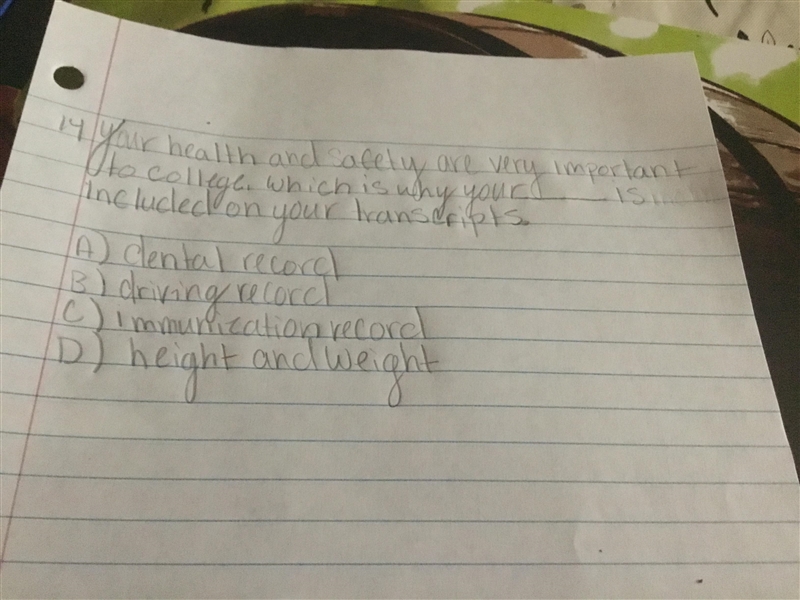 14 Your health and safety are very important
to college. which is why your ___ is
included on your transcripts.
A) dental record
B) driving record
C) immunization record
D) height and weight